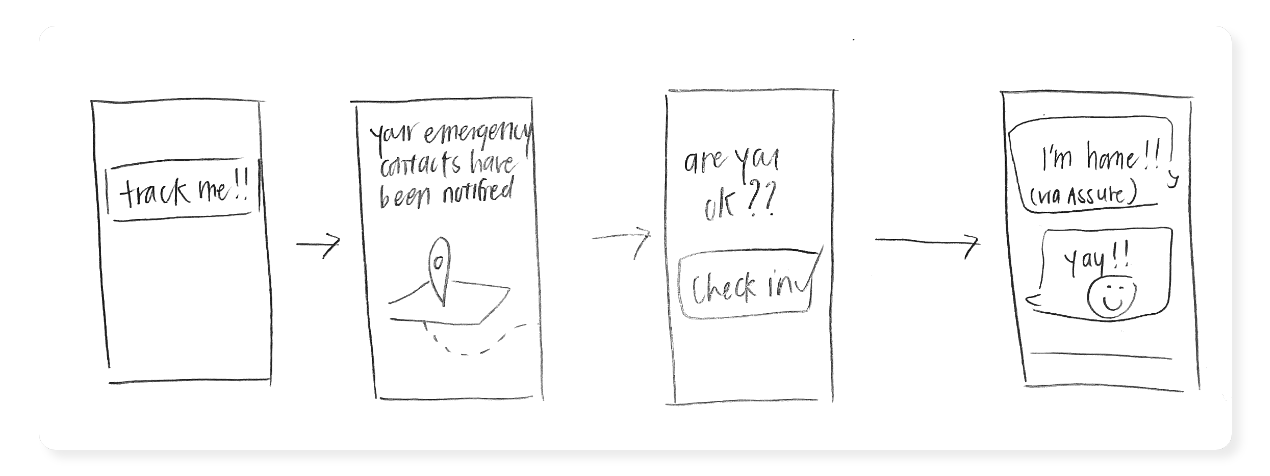 track me!!
your emergency
contacts have
been notified
are you
ok??
check in
I'm home!!
(via Assure)
yay!!